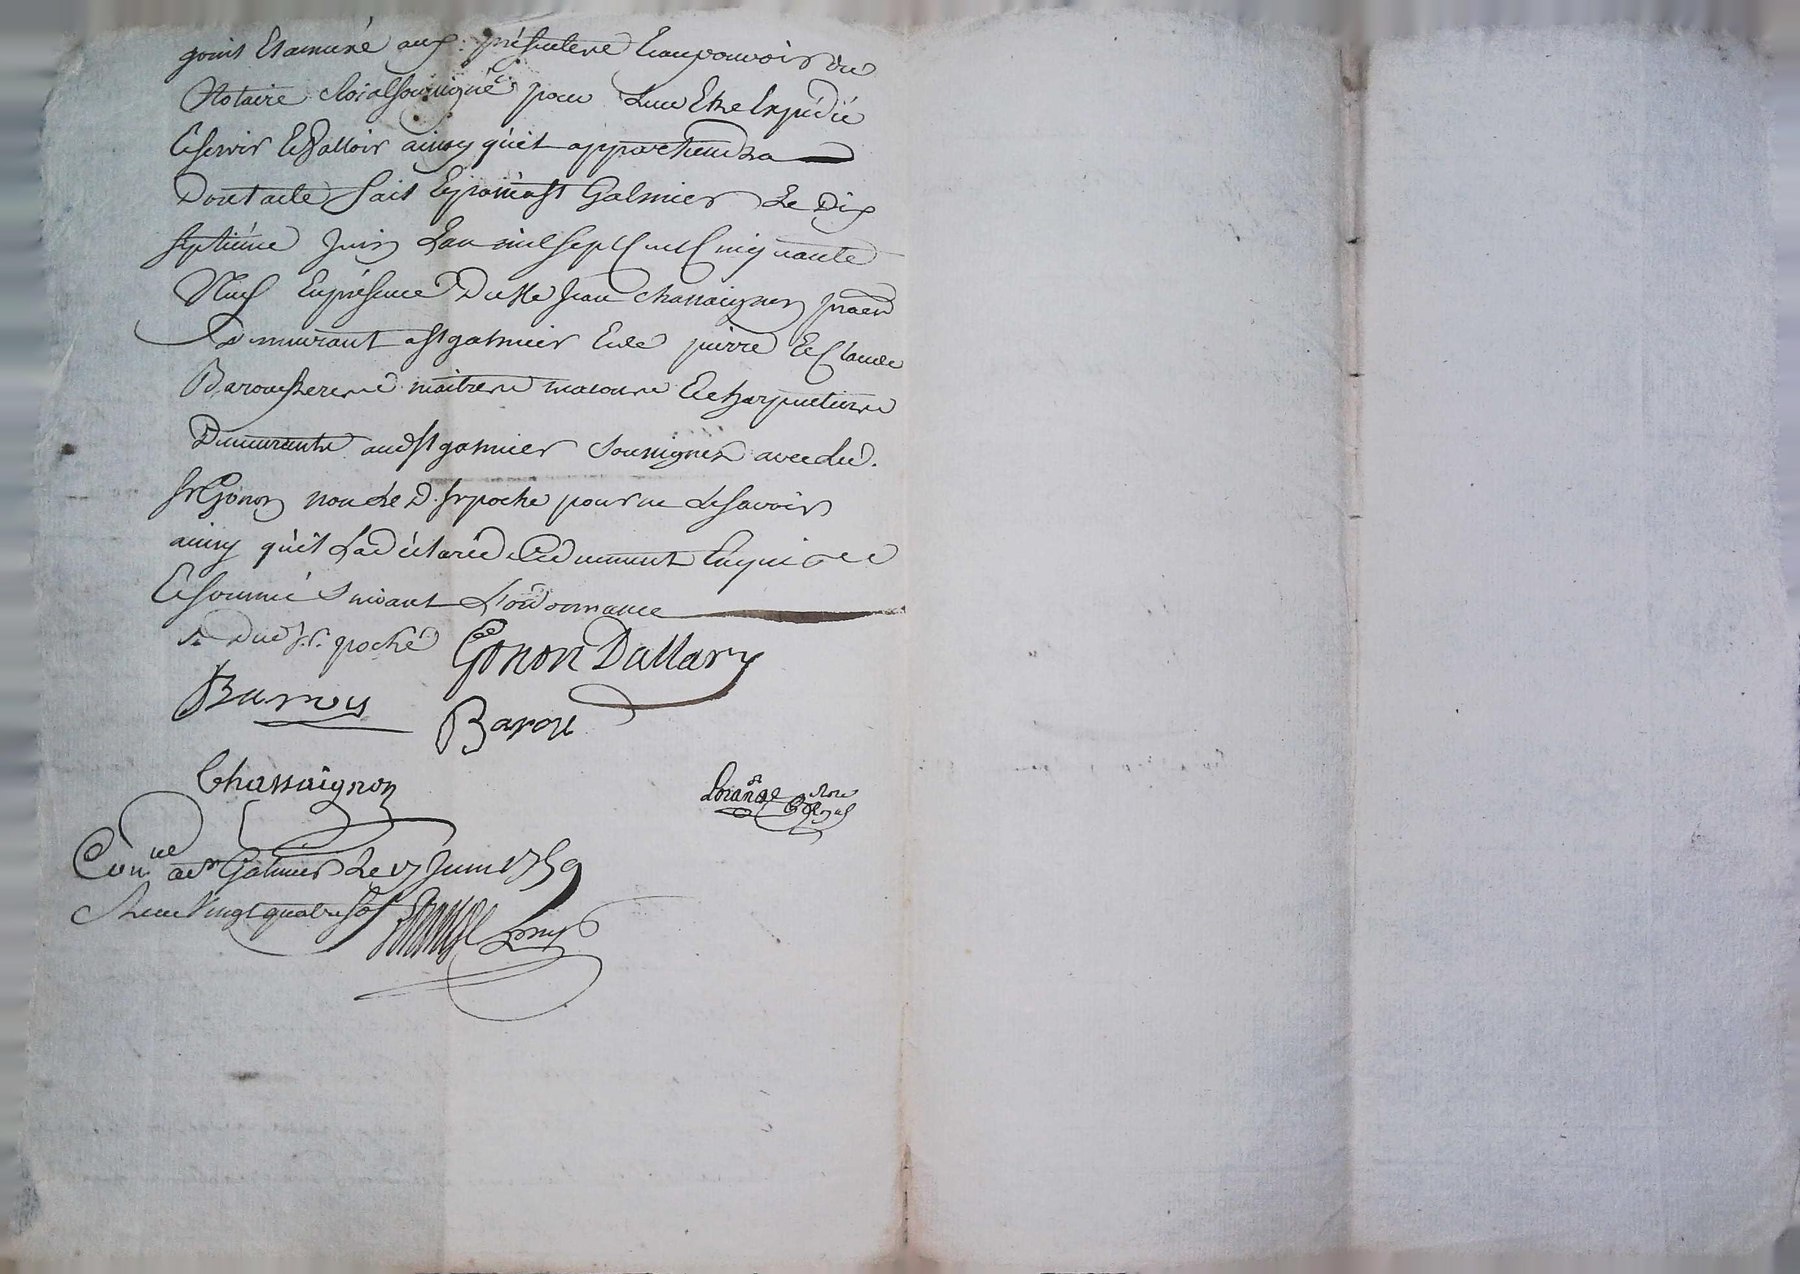 joint et annexé aux présentes et au pouvoir du
Notaire Roial soussigné pour leur etre Expédié
Et servir Et valloir ainsy qu'il appartiendra
Dont acte fait Et passé a St Galmier Le Dix
septième Juin L'an mil sept Cent Cinquante
Neuf En présence De Me Jean Chassaignon
Demeurant a St galmier Et de pierre Et Claude
Barou freres maitres massons Et charpentiers
Demeurants aud St galmier soussignés avec Led.
Sr Gonon non Le D. Sr poche pour ne Le savoir
ainsy qu'il L'a déclaré De ce duement Enquis
Et sommé suivant L'ordonnance
Dud Sr. poché Gonon Dallary
Barou
Barou
Chassaignon
Con.lé a St Galmier Le 17 Juin 1759
Reçu Vingt quatre sols